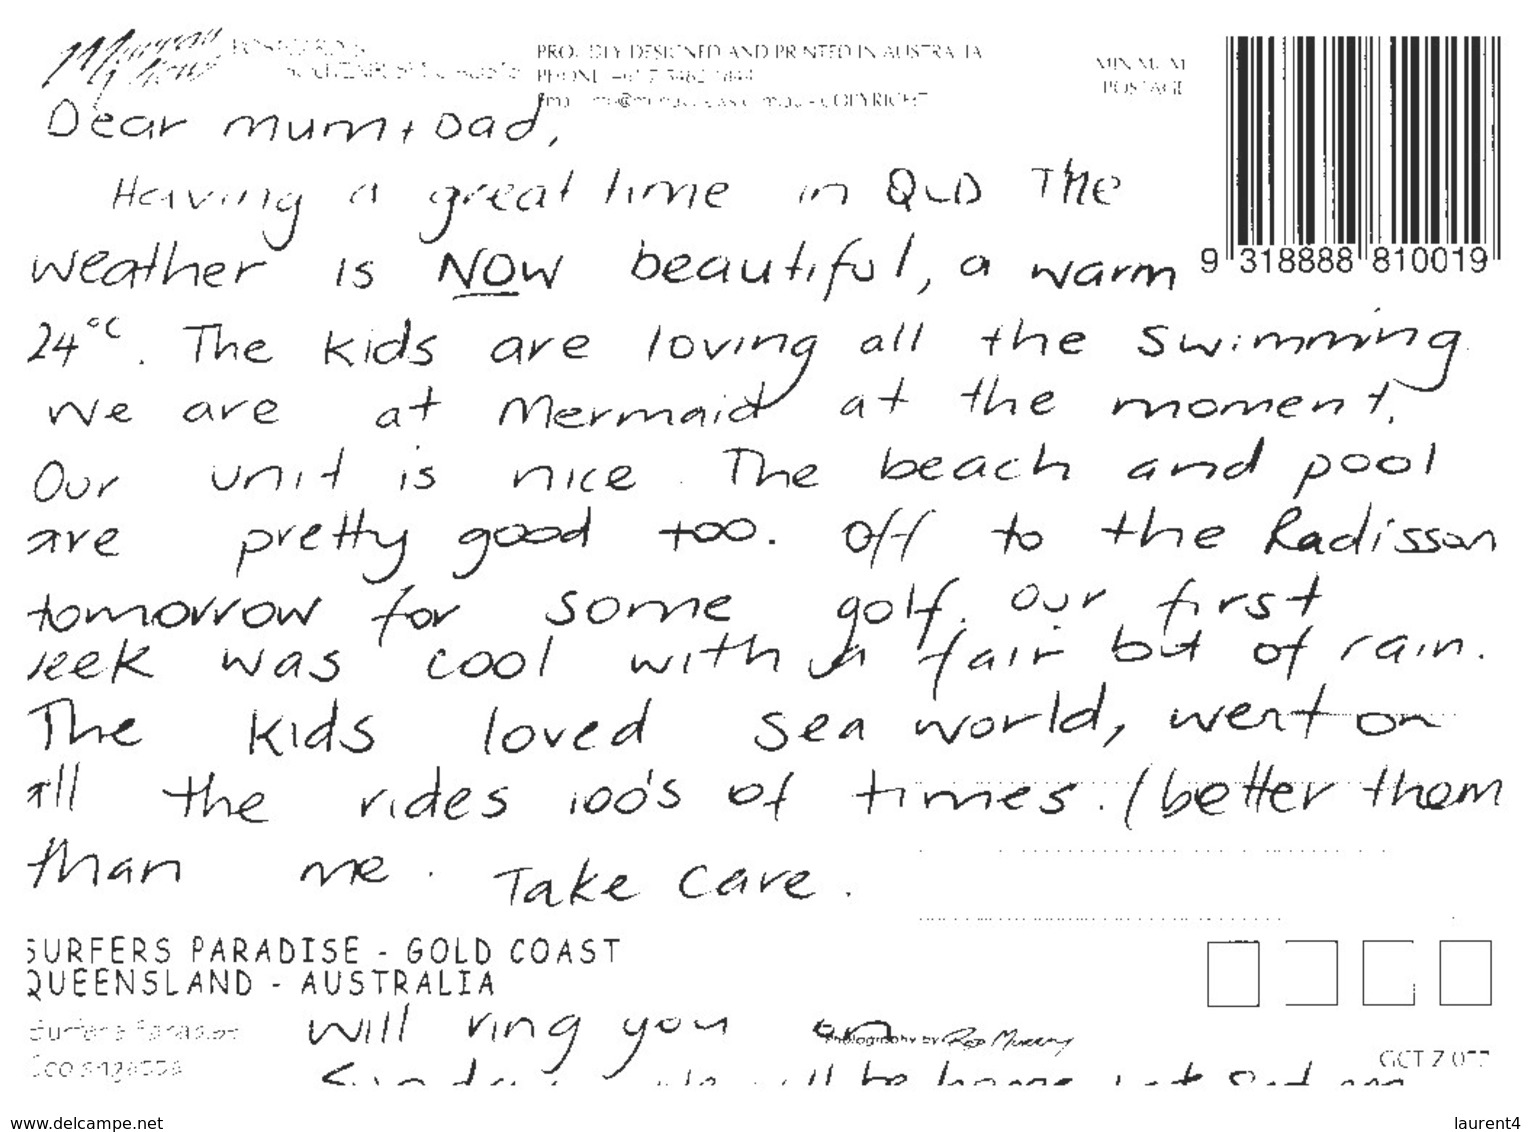 Murray Views POSTCARDS
PROUDLY DESIGNED AND PRINTED IN AUSTRALIA
PHONE
COPYRIGHT
MINIMUM
POSTAGE
9 318888 810019
Dear mum + Dad,
Having a great time in QLD The
weather is NOW beautiful, a warm
24°C. The kids are loving all the swimming.
We are at Mermaid at the moment.
Our unit is nice. The beach and pool
are pretty good too. Off to the Radisson
tomorrow for some golf. Our first
week was cool with a fair but of rain.
The kids loved sea world, went on
all the rides 100's of times. (better them
than me. Take Care.
SURFERS PARADISE - GOLD COAST
QUEENSLAND - AUSTRALIA
will ring you on
Photography by Rod Murray
GCT Z 077
www.delcampe.net
laurent4